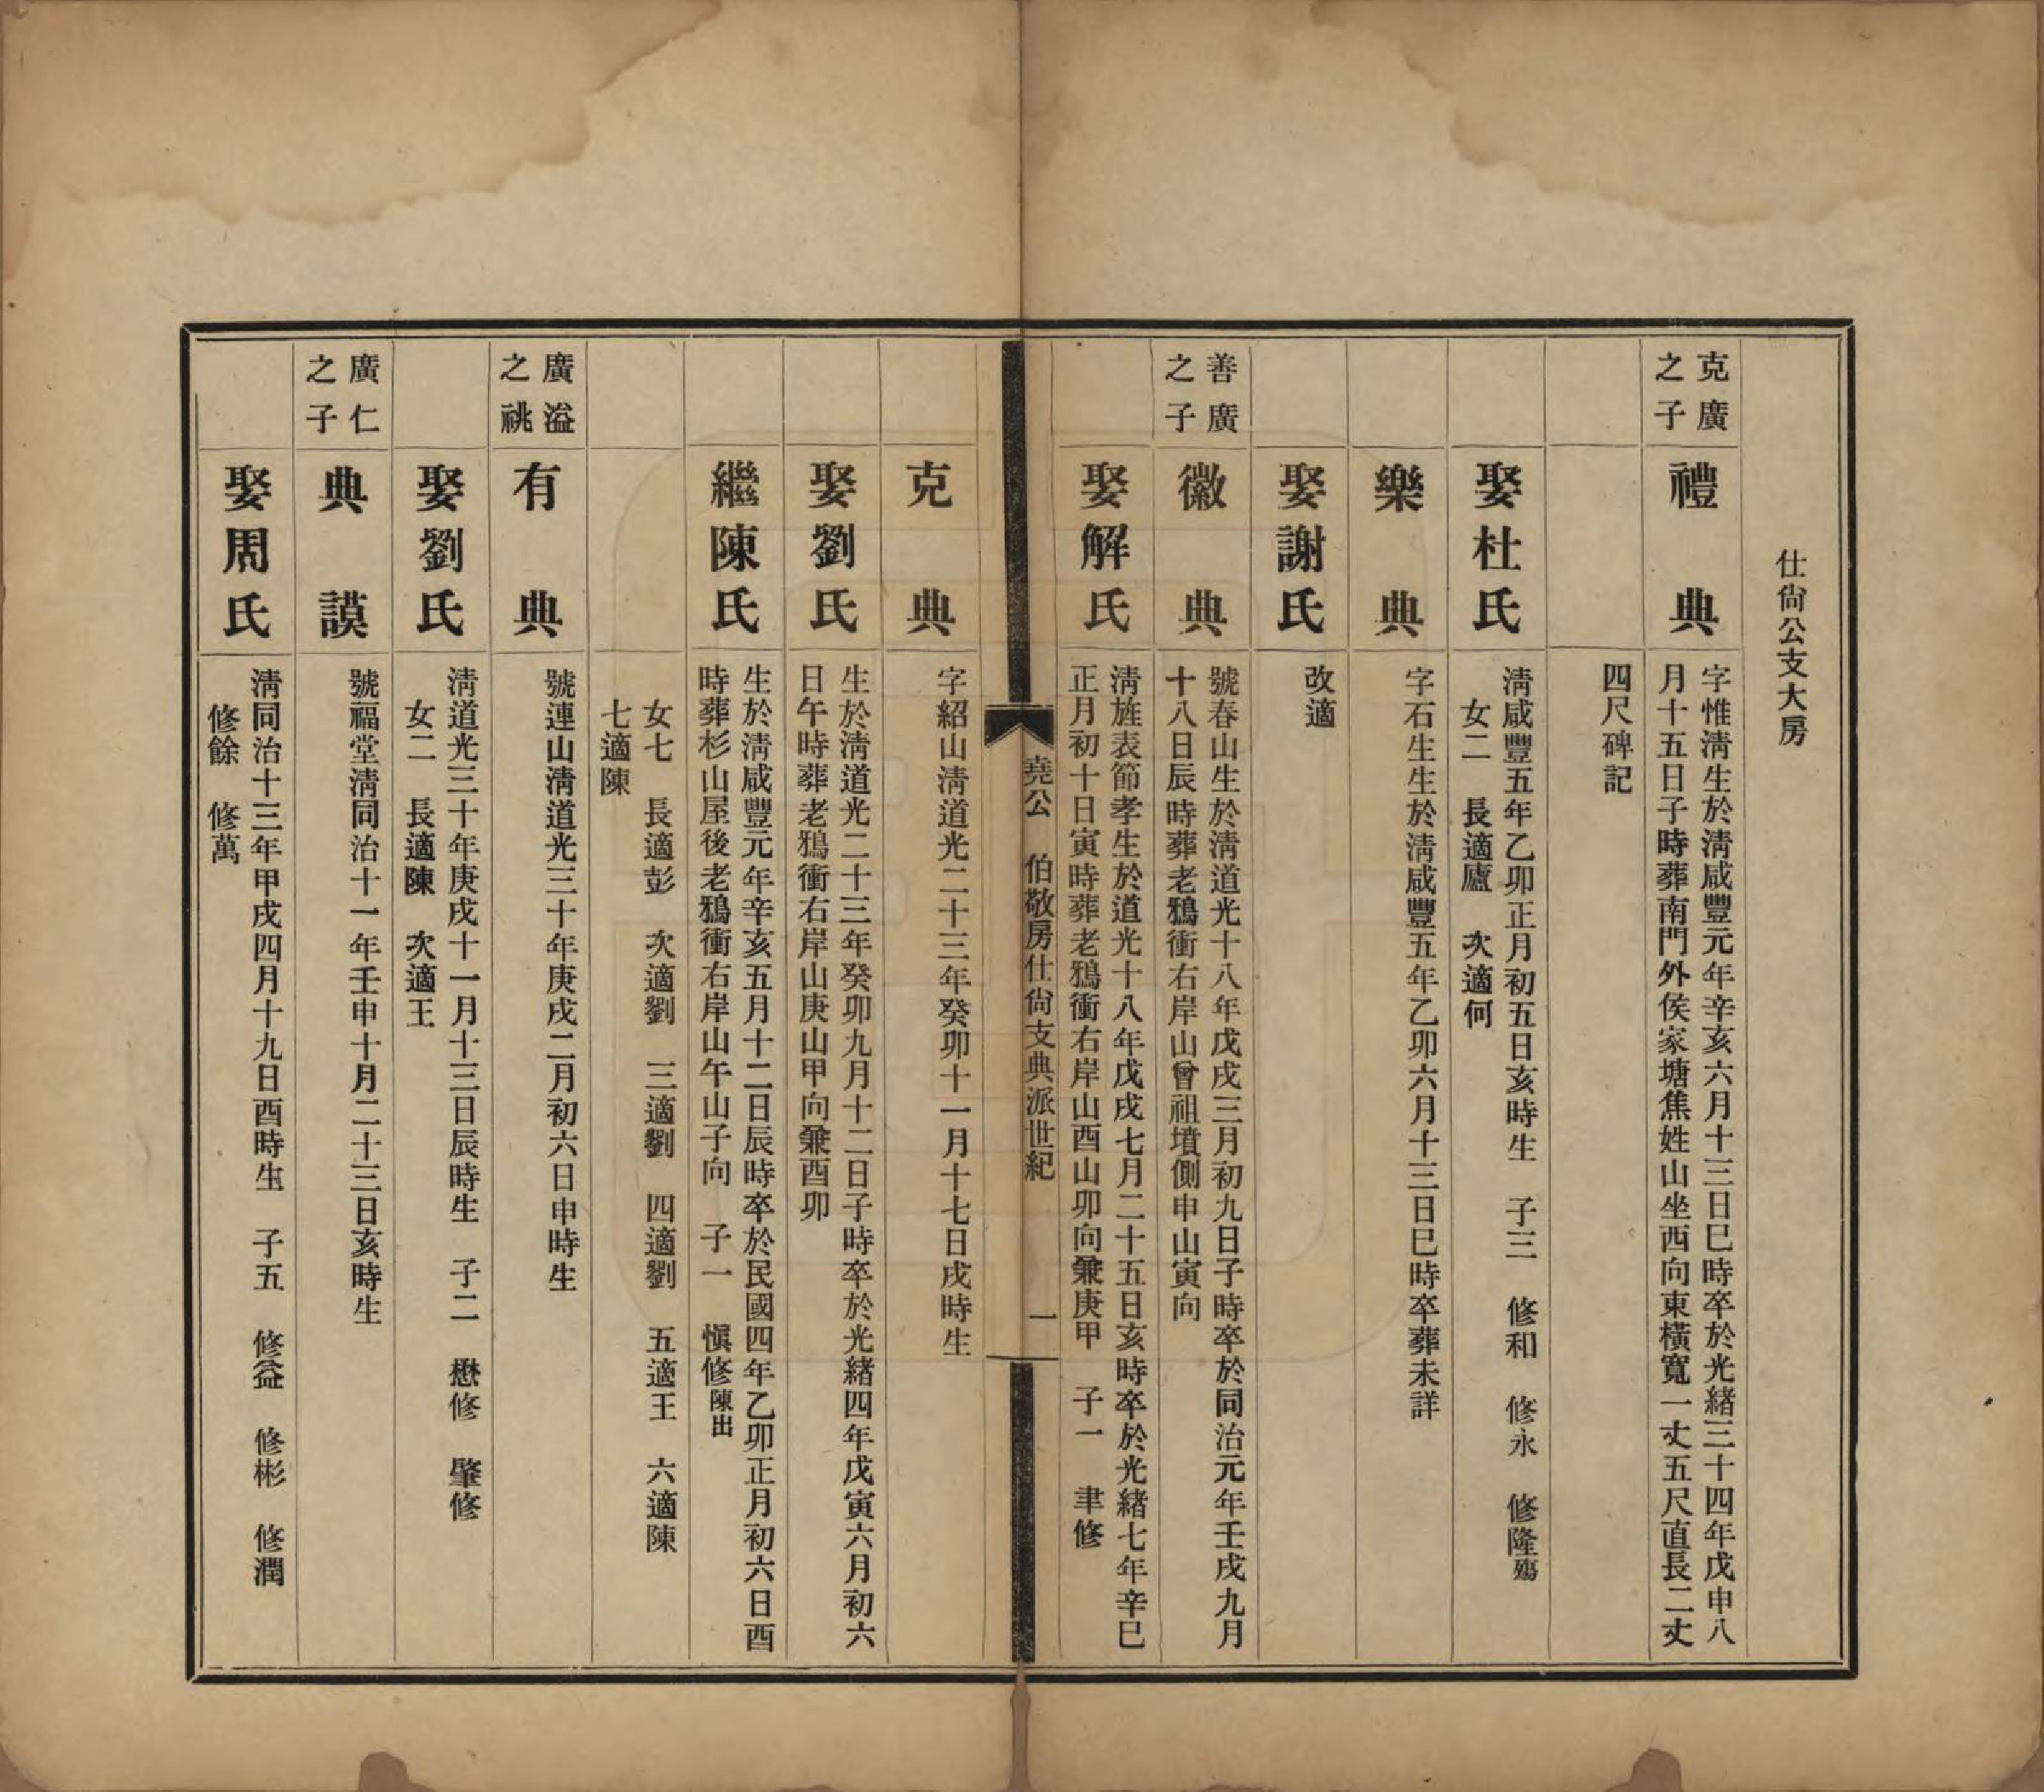 仕尙公支大房
克廣
之子
禮典
字惟淸生於淸咸豐元年辛亥六月十三日巳時卒於光緒三十四年戊申八
月十五日子時葬南門外侯家塘焦姓山坐西向東橫寬一丈五尺直長二丈
四尺碑記
娶杜氏
淸咸豐五年乙卯正月初五日亥時生　子三　修和　修永　修隆殤
女二　長適廬　次適何
樂典
字石生生於淸咸豐五年乙卯六月十三日巳時卒葬未詳
娶謝氏
改適
善廣
之子
徽典
號春山生於淸道光十八年戊戌三月初九日子時卒於同治元年壬戌九月
十八日辰時葬老鴉衝右岸山曾祖墳側申山寅向
娶解氏
淸旌表節孝生於道光十八年戊戌七月二十五日亥時卒於光緒七年辛巳
正月初十日寅時葬老鴉衝右岸山酉山卯向兼庚甲　子一　聿修
堯公　伯敬房仕尙支典派世紀　一
克典
字紹山淸道光二十三年癸卯十一月十七日戌時生
娶劉氏
生於淸道光二十三年癸卯九月十二日子時卒於光緒四年戊寅六月初六
日午時葬老鴉衝右岸山庚山甲向兼酉卯
繼陳氏
生於淸咸豐元年辛亥五月十二日辰時卒於民國四年乙卯正月初六日酉
時葬杉山屋後老鴉衝右岸山午山子向　子一　愼修陳出
女七　長適彭　次適劉　三適劉　四適劉　五適王　六適陳
七適陳
廣溢
之祧
有典
號連山淸道光三十年庚戌二月初六日申時生
娶劉氏
淸道光三十年庚戌十一月十三日辰時生　子二　懋修　肇修
女二　長適陳　次適王
廣仁
之子
典謨
號福堂淸同治十一年壬申十月二十三日亥時生
娶周氏
淸同治十三年甲戌四月十九日酉時生　子五　修益　修彬　修潤
修餘　修萬